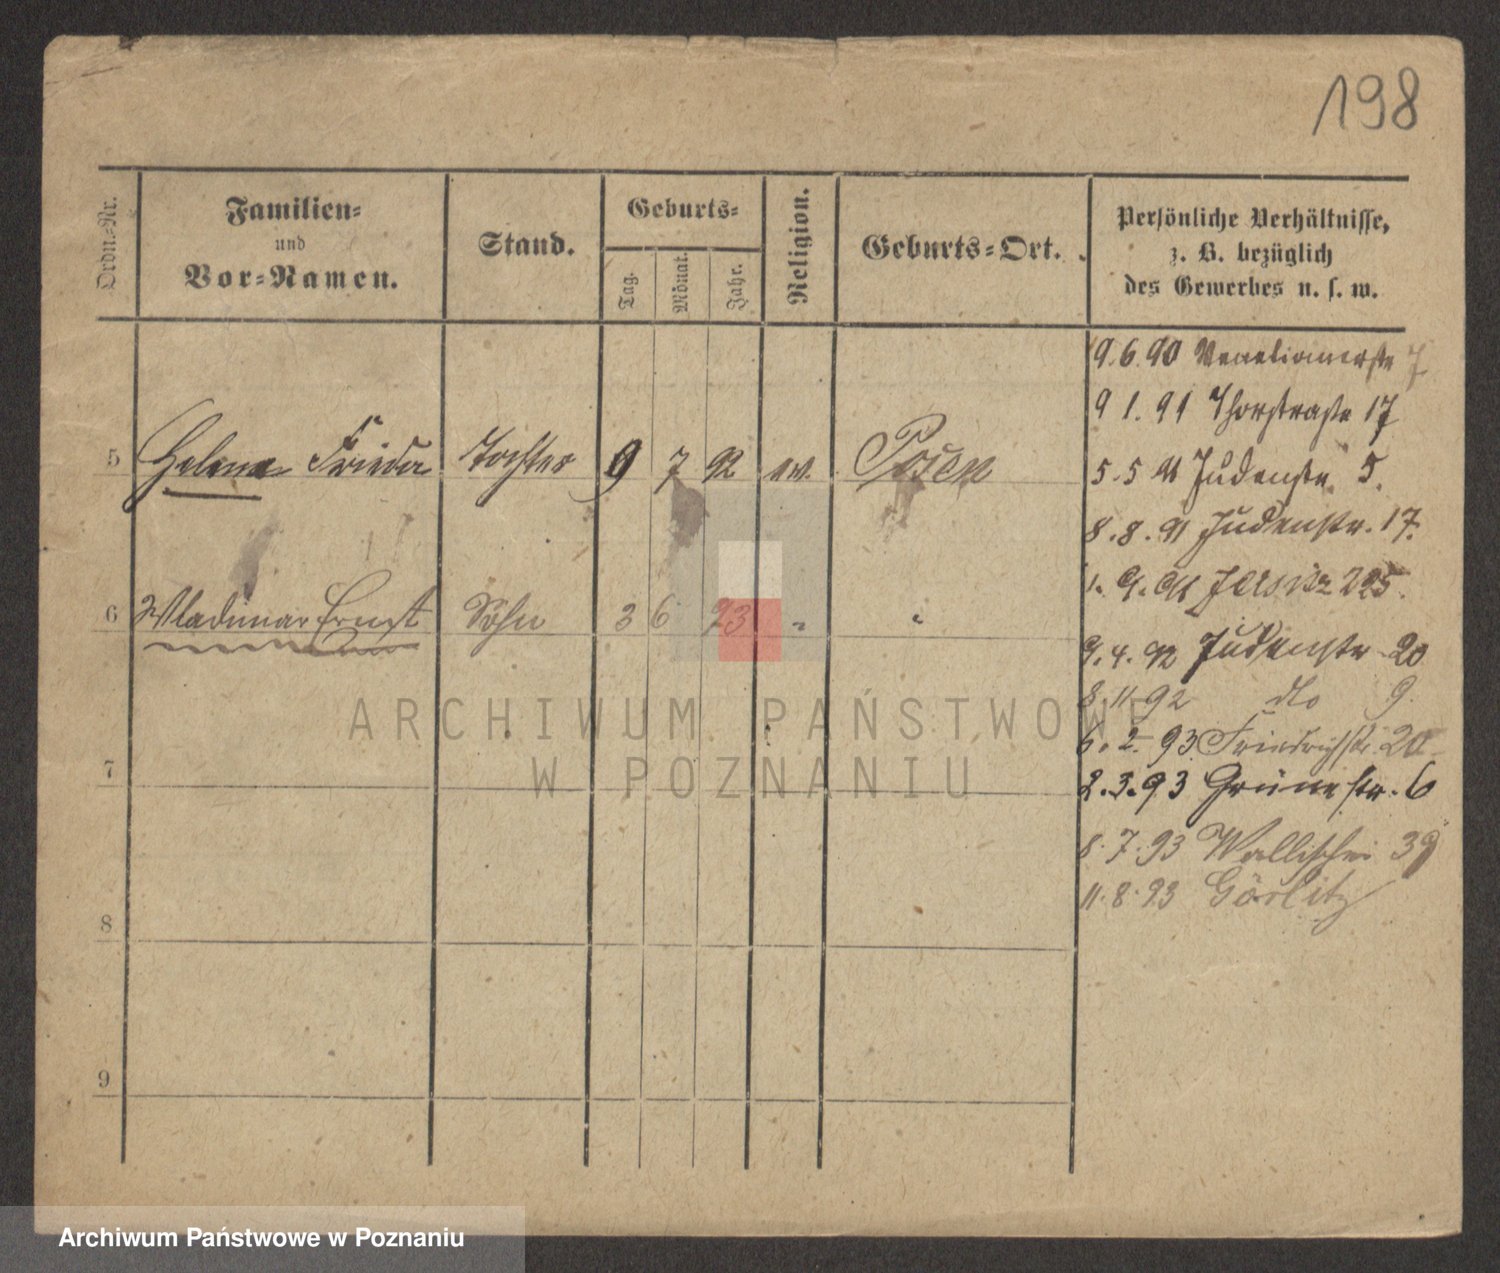 198
Ordn.-Nr.
Familien-
und
Vor-Namen.
Stand.
Geburts-
Tag.
Monat.
Jahr.
Religion.
Geburts-Ort.
Persönliche Verhältnisse,
z. B. bezüglich
des Gewerbes u. s. w.
9.6.90 Venetianerstr 7
9 1. 91 Thorstraße 17
5 Helena Frieda Tochter 9 7 92 ev. Posen
5.5 91 Judenstr. 5.
8.8.91 Judenstr. 17.
1. 9. 91 Jersitz 225.
6 Wladimar Ernst Sohn 3 6 93 " "
9.4.92 Judenstr 20
8 11 92 dto 9.
6. 2. 93 Friedrichstr. 20
7
2.3.93 Grünestr. 6
8.7.93 Wallischei 39
11.8.93 Görlitz
8
9
ARCHIWUM PAŃSTWOWE
W POZNANIU
Archiwum Państwowe w Poznaniu